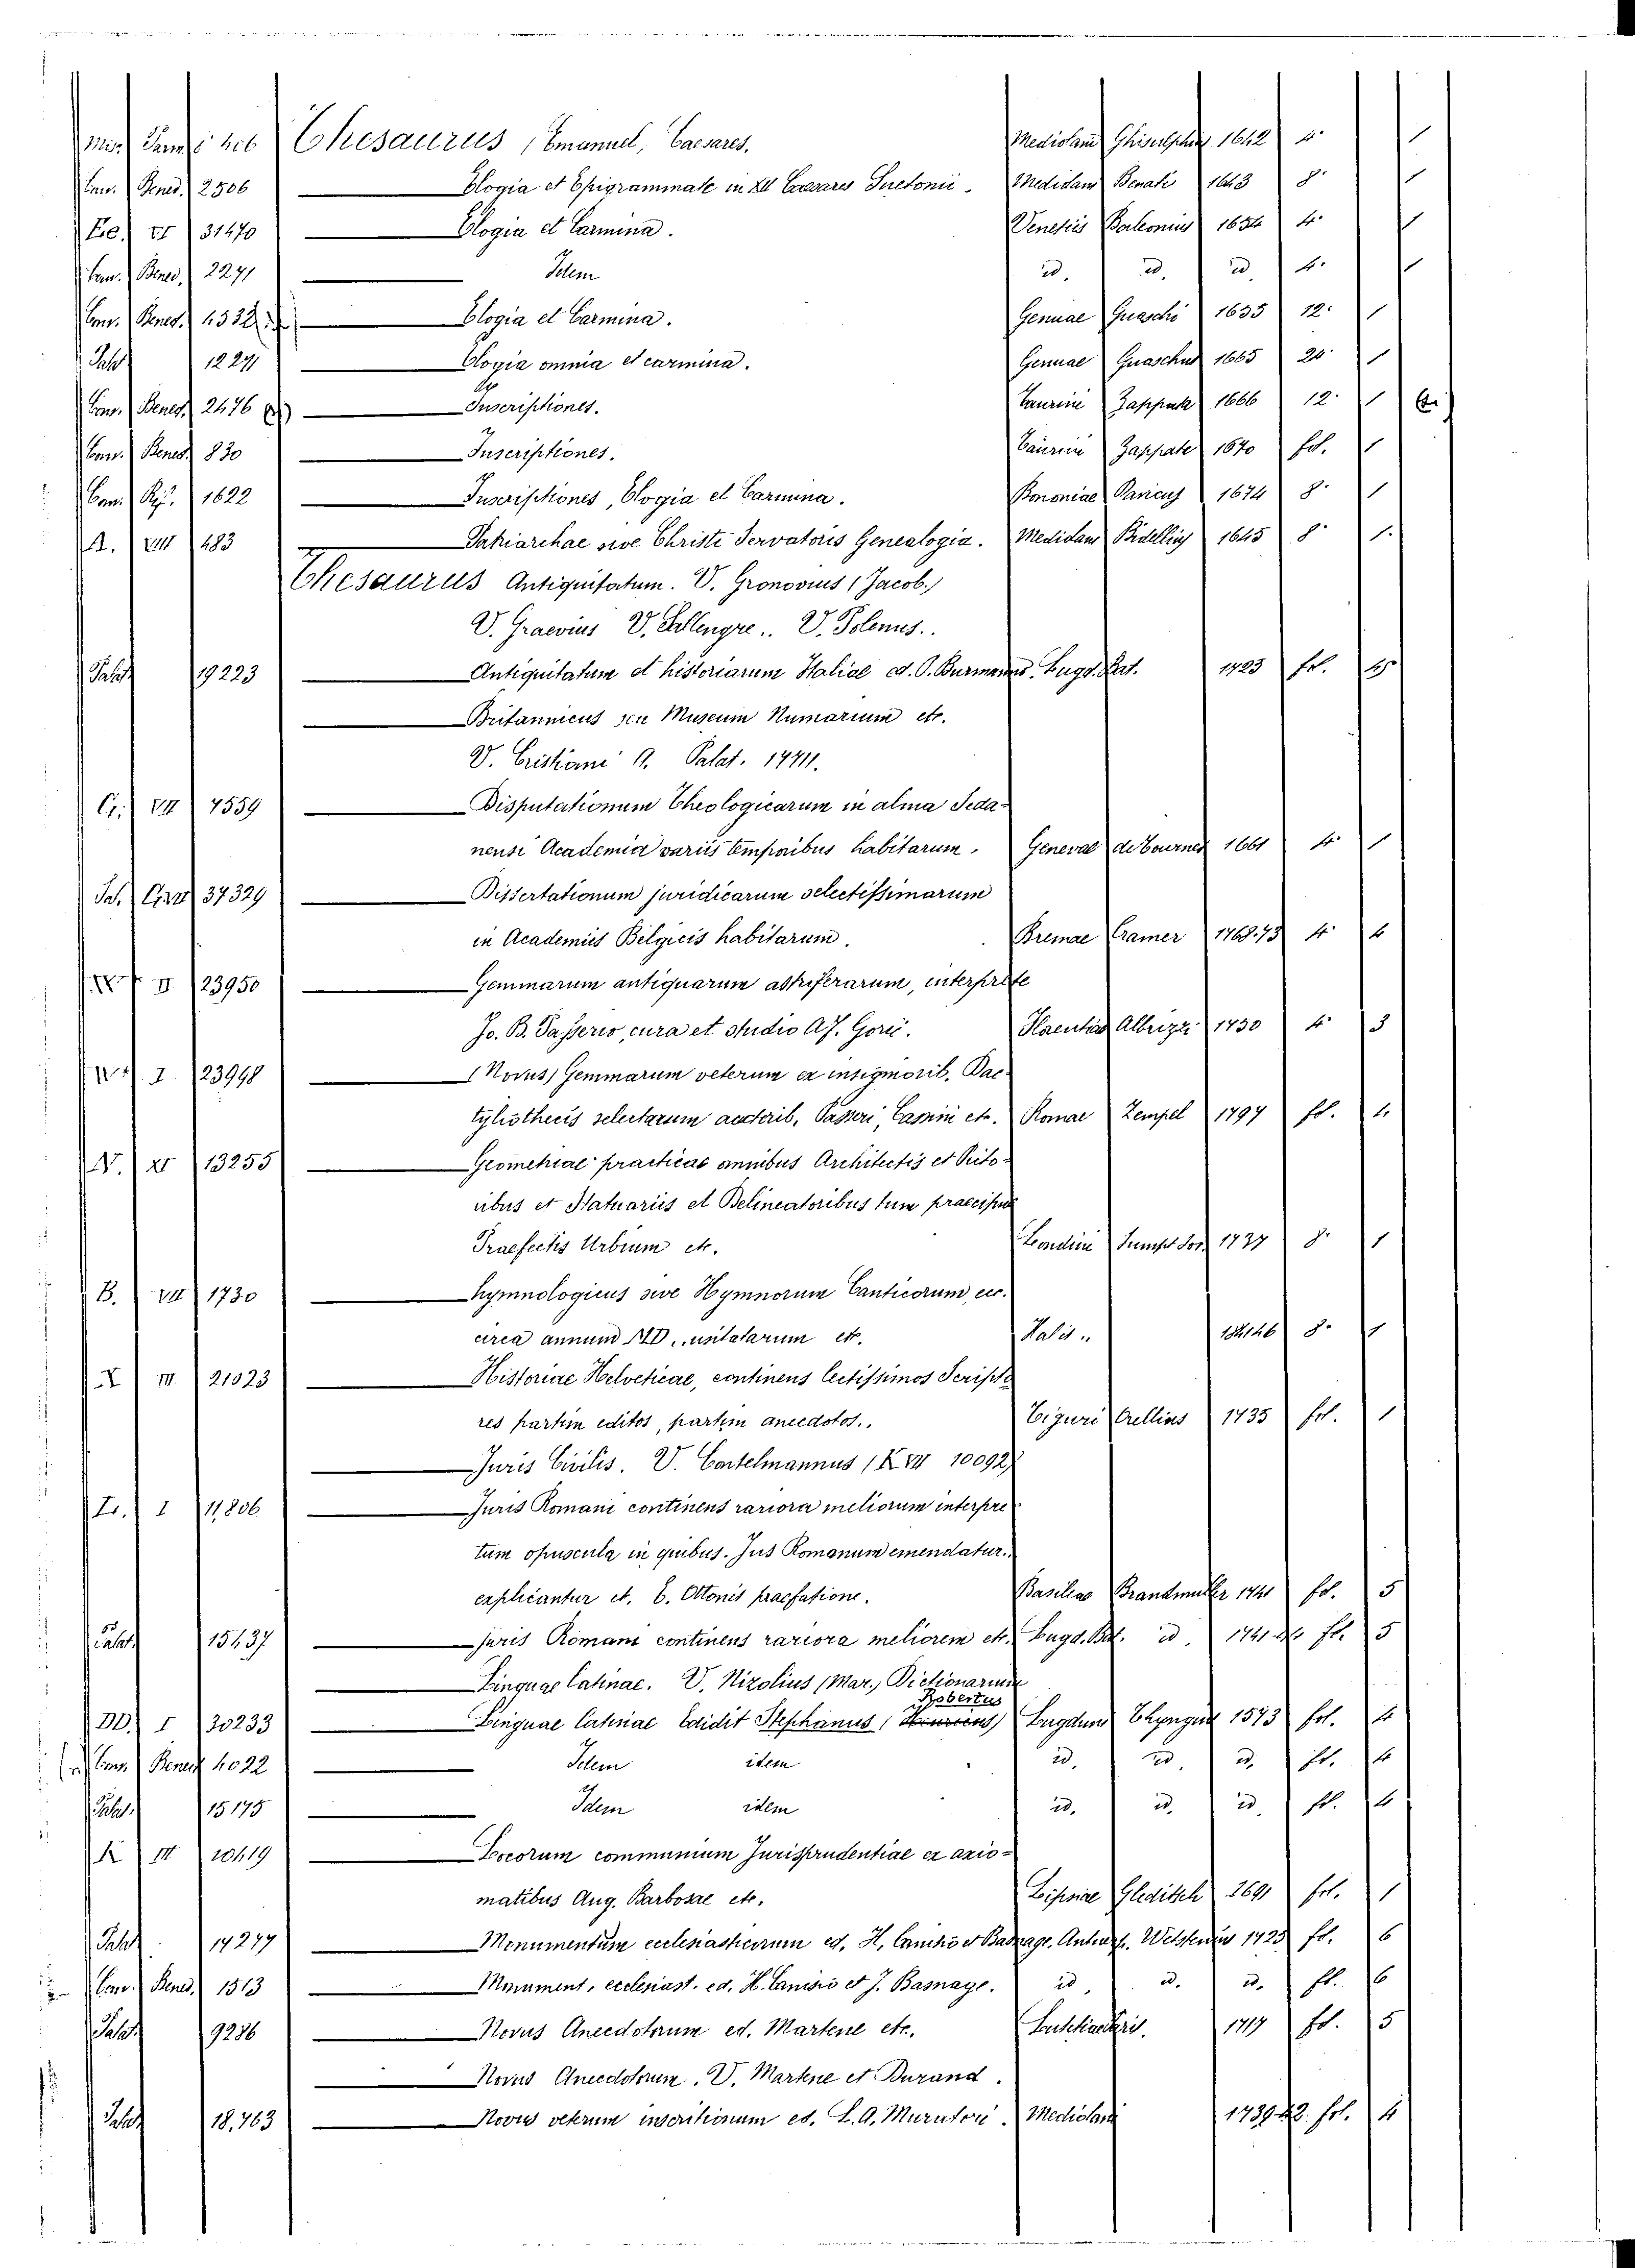 Thesaurus, Emanuel, Caesares. Mediolani 1642 4° 1
Bened. 2506 Elogia et Epigrammate in XII Caesares Suetonii. Mediolani Benati 1643 8° 1
31470 Elogia et Carmina. Venetiis 1654 4° 1
Bened. 2271 Idem id. id. id. 4° 1
Bened. 1532 Elogia et Carmina. Genuae Guaschi 1655 12° 1
Palat 12271 Elogia omnia et carmina. Genuae Guaschus 1665 24° 1
Bened. 2476 Inscriptiones. Taurini Zappate 1666 12° 1
Bened. 830 Inscriptiones. Taurini Zappate 1670 fol. 1
1622 Inscriptiones, Elogia et Carmina. Bononiae 1674 8° 1
A. VIII 483 Patriarchae sive Christi Servatoris Genealogia. Mediolani Bidellius 1645 8° 1.
Thesaurus Antiquitatum. V. Gronovius (Jacob.)
V. Graevius V. Sallengre.. V. Polenus..
Palat 19223 Antiquitatum et historiarum Italiae ed. P. Burmannus. Lugd. Bat. 1723 fol. 45
Britannicus seu Museum Numarium etc.
V. Cristiani A. Palat. 17711.
G. VII 7559 Disputationum Theologicarum in alma Seda-
nensi Academia variis temporibus habitarum. Genevae de Tournes 1661 4° 1
37329 Dissertationum juridicarum selectissimarum
in Academiis Belgicis habitarum. Bremae Cramer 1768-73 4°
II 23950 Gemmarum antiquarum astriferarum, interprete
Jo. B. Passerio, cura et studio A.F. Gorii. Florentiae Albrizzi 1750 4° 3
I 23948 (Novus) Gemmarum veterum ex insigniorib. Dac-
tyliothecis selectarum auctorib. Passeri, Cassini etc. Romae Zempel 1797 fol.
N. XI 13255 Geometriae practicae omnibus Architectis et Picto-
ribus et Statuariis et Delineatoribus tum praecipue
Praefectis Urbium etc. Londini 1737 8° 1
B. VII 1730 hymnologicus sive Hymnorum Canticorum, etc.
circa annum MD., usitatarum etc. Halis.. 8° 1
X III 21023 Historiae Helveticae, continens lectissimos Scripto
res partim editos, partim anecdotos.. Tiguri Orellius 1735 fol. 1
Juris Civilis. V. Castelmannus (K VII 10092)
I 11,806 Juris Romani continens rariora meliorum interpre
tum opuscula in quibus. Jus Romanum emendatur..
explicantur et. E. Ottonis praefatione. Basileae Brandmuller 1741 fol. 5
Palat. 15,137 juris Romani continens rariora meliorem etc. Lugd. Bat. id. fol. 5
Linguae Latinae. V. Nizolius (Mar.) Dictionarium
Robertus
DD. I 30233 Linguae Latinae Edidit Stephanus, (Henricus) Lugduni 1573 fol. 4
Bened. 4022 Idem idem id. id. id. fol. 4
Palat. 15175 Idem idem id. id. id. fol. 4
K III 10419 Locorum communium Jurisprudentiae ex axio-
matibus Aug. Barbosae etc. Lipsiae Gleditsch 1691 fol. 1
Palat. 17277 Monumentum ecclesiasticorum ed. H. Canisio et Basnage. Antverp. Wetstenius 1725 fol. 6
Bened. 1513 Monument. ecclesiast. ed. H. Canisio et J. Basnage. id. id. id. fol. 6
Palat. 9286 Novus Anecdotorum ed. Martene etc. 1717 fol. 5
Novus Anecdotorum. V. Martene et Durand.
Palat 18,763 Novus veterum inscritionum ed. L.A. Muratori. Mediolani 1739-42. fol. 4